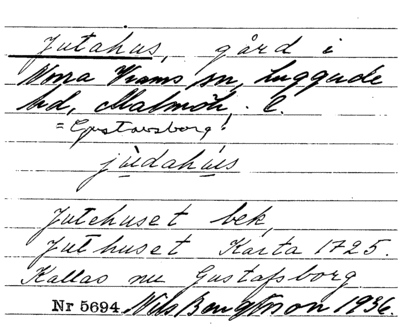 Jutahus, gård i
Norra Vrams sn, Luggude
hd, Malmöh. l.
= Gustavsborg!
jùdahùs
Jutehuset bek.
Juthuset Karta 1725.
Kallas nu Gustafsborg
Nr 5694 Nils Bengtsson 1936.